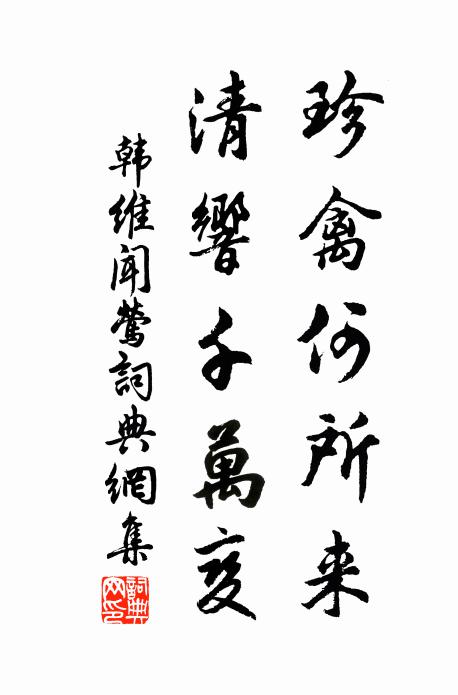 珍禽何所来
清響千萬变
韩維闻鶯詞典網集
詞典网印